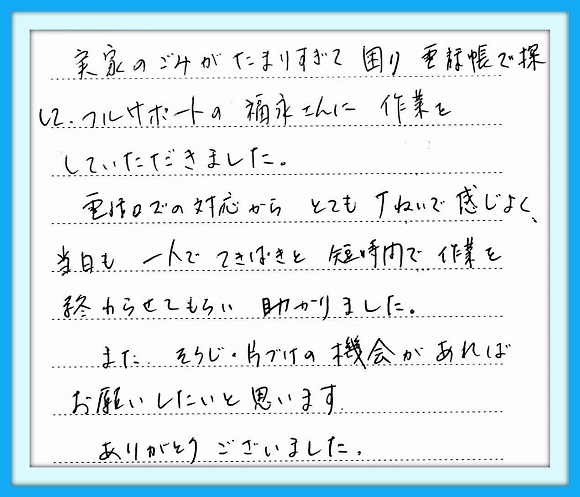 実家のごみがたまりすぎて困り電話帳で探
して、フルサポートの福永さんに作業を
していただきました。
電話口での対応からとてもていねいで感じよく、
当日も一人でてきぱきと短時間で作業を
終わらせてもらい助かりました。
また、そうじ・片づけの機会があれば
お願いしたいと思います。
ありがとうございました。